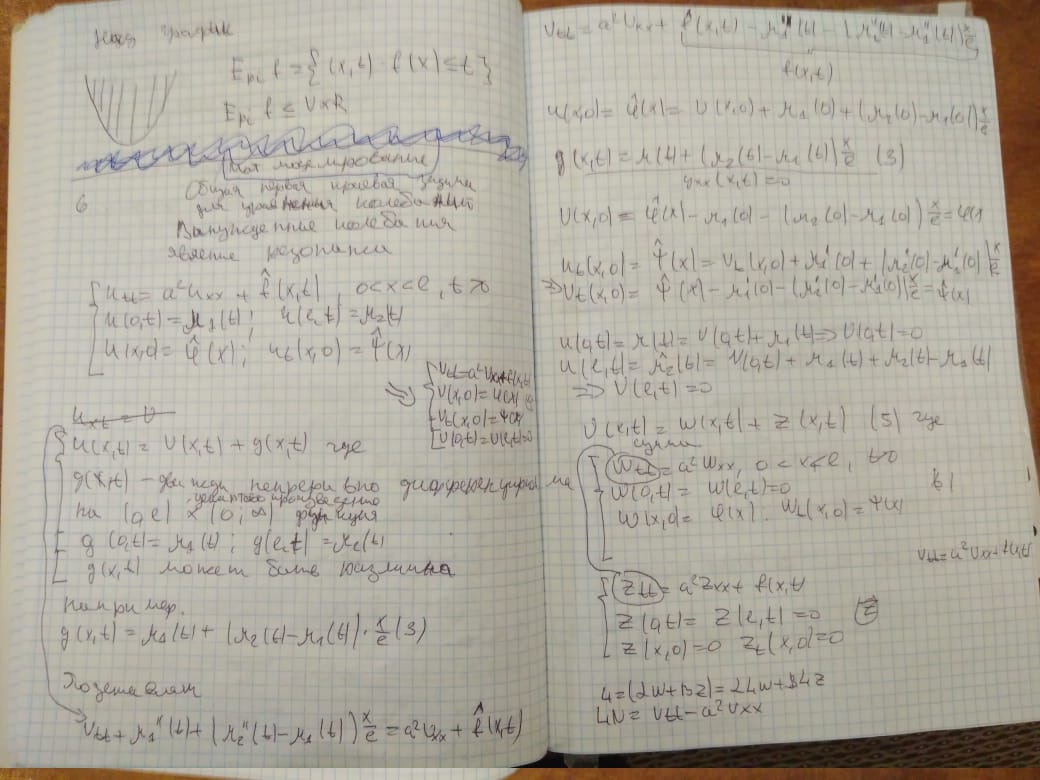 над график
Epi f = {(x,t) : f(x) ≤ t}
Epi f ≤ V×R
Мат моделирование
6
Общая первая краевая задача
для уравнения колебаний
Вынужденные колебания
явление резонанса
u_tt = a² u_xx + f̂(x,t), 0<x<l, t>0
u(0,t) = μ₁(t); u(l,t) = μ₂(t)
u(x,0) = φ̂(x); u_t(x,0) = ψ̂(x)
⇒ V_tt = a² V_xx + f(x,t)
V(x,0) = φ(x)
V_t(x,0) = ψ(x)
V(0,t) = V(l,t) = 0
u_xt = 0
u(x,t) = V(x,t) + g(x,t) где
g(x,t) – дважды непрерывно дифференцируема
на (0,l) × (0; ∞) функция
g(0,t) = μ₁(t); g(l,t) = μ₂(t)
g(x,t) может быть различна
например.
g(x,t) = μ₁(t) + (μ₂(t) – μ₁(t)) · x/l (3)
Подставляя
V_tt + μ₁''(t) + (μ₂''(t) – μ₁''(t)) x/l = a² V_xx + f̂(x,t)
V_tt = a² V_xx + f̂(x,t) – μ₁''(t) – (μ₂''(t) – μ₁''(t)) x/l
f(x,t)
u(x,0) = φ̂(x) = V(x,0) + μ₁(0) + (μ₂(0) – μ₁(0)) x/l
g(x,t) = μ(t) + (μ₂(t) – μ₁(t)) x/l (3)
g_xx(x,t) = 0
V(x,0) = φ̂(x) – μ₁(0) – (μ₂(0) – μ₁(0)) x/l = φ(x)
u_t(x,0) = ψ̂(x) = V_t(x,0) + μ₁'(0) + (μ₂'(0) – μ₁'(0)) x/l
⇒ V_t(x,0) = ψ̂(x) – μ₁'(0) – (μ₂'(0) – μ₁'(0)) x/l = ψ(x)
u(0,t) = μ(t) = V(0,t) + μ₁(t) ⇒ V(0,t) = 0
u(l,t) = μ̂₂(t) = V(0,t) + μ₁(t) + μ₂(t) – μ₁(t)
⇒ V(l,t) = 0
V(x,t) = W(x,t) + Z(x,t) (5) где
W_tt = a² W_xx, 0 < x < l, t>0
W(0,t) = W(l,t) = 0
W(x,0) = φ(x). W_t(x,0) = ψ(x)
6)
V_tt = a² V_xx + f(x,t)
Z_tt = a² Z_xx + f(x,t)
Z(0,t) = Z(l,t) = 0
Z(x,0) = 0 Z_t(x,0) = 0
L = (αW + βZ) = αLW + βLZ
LV = V_tt – a² V_xx